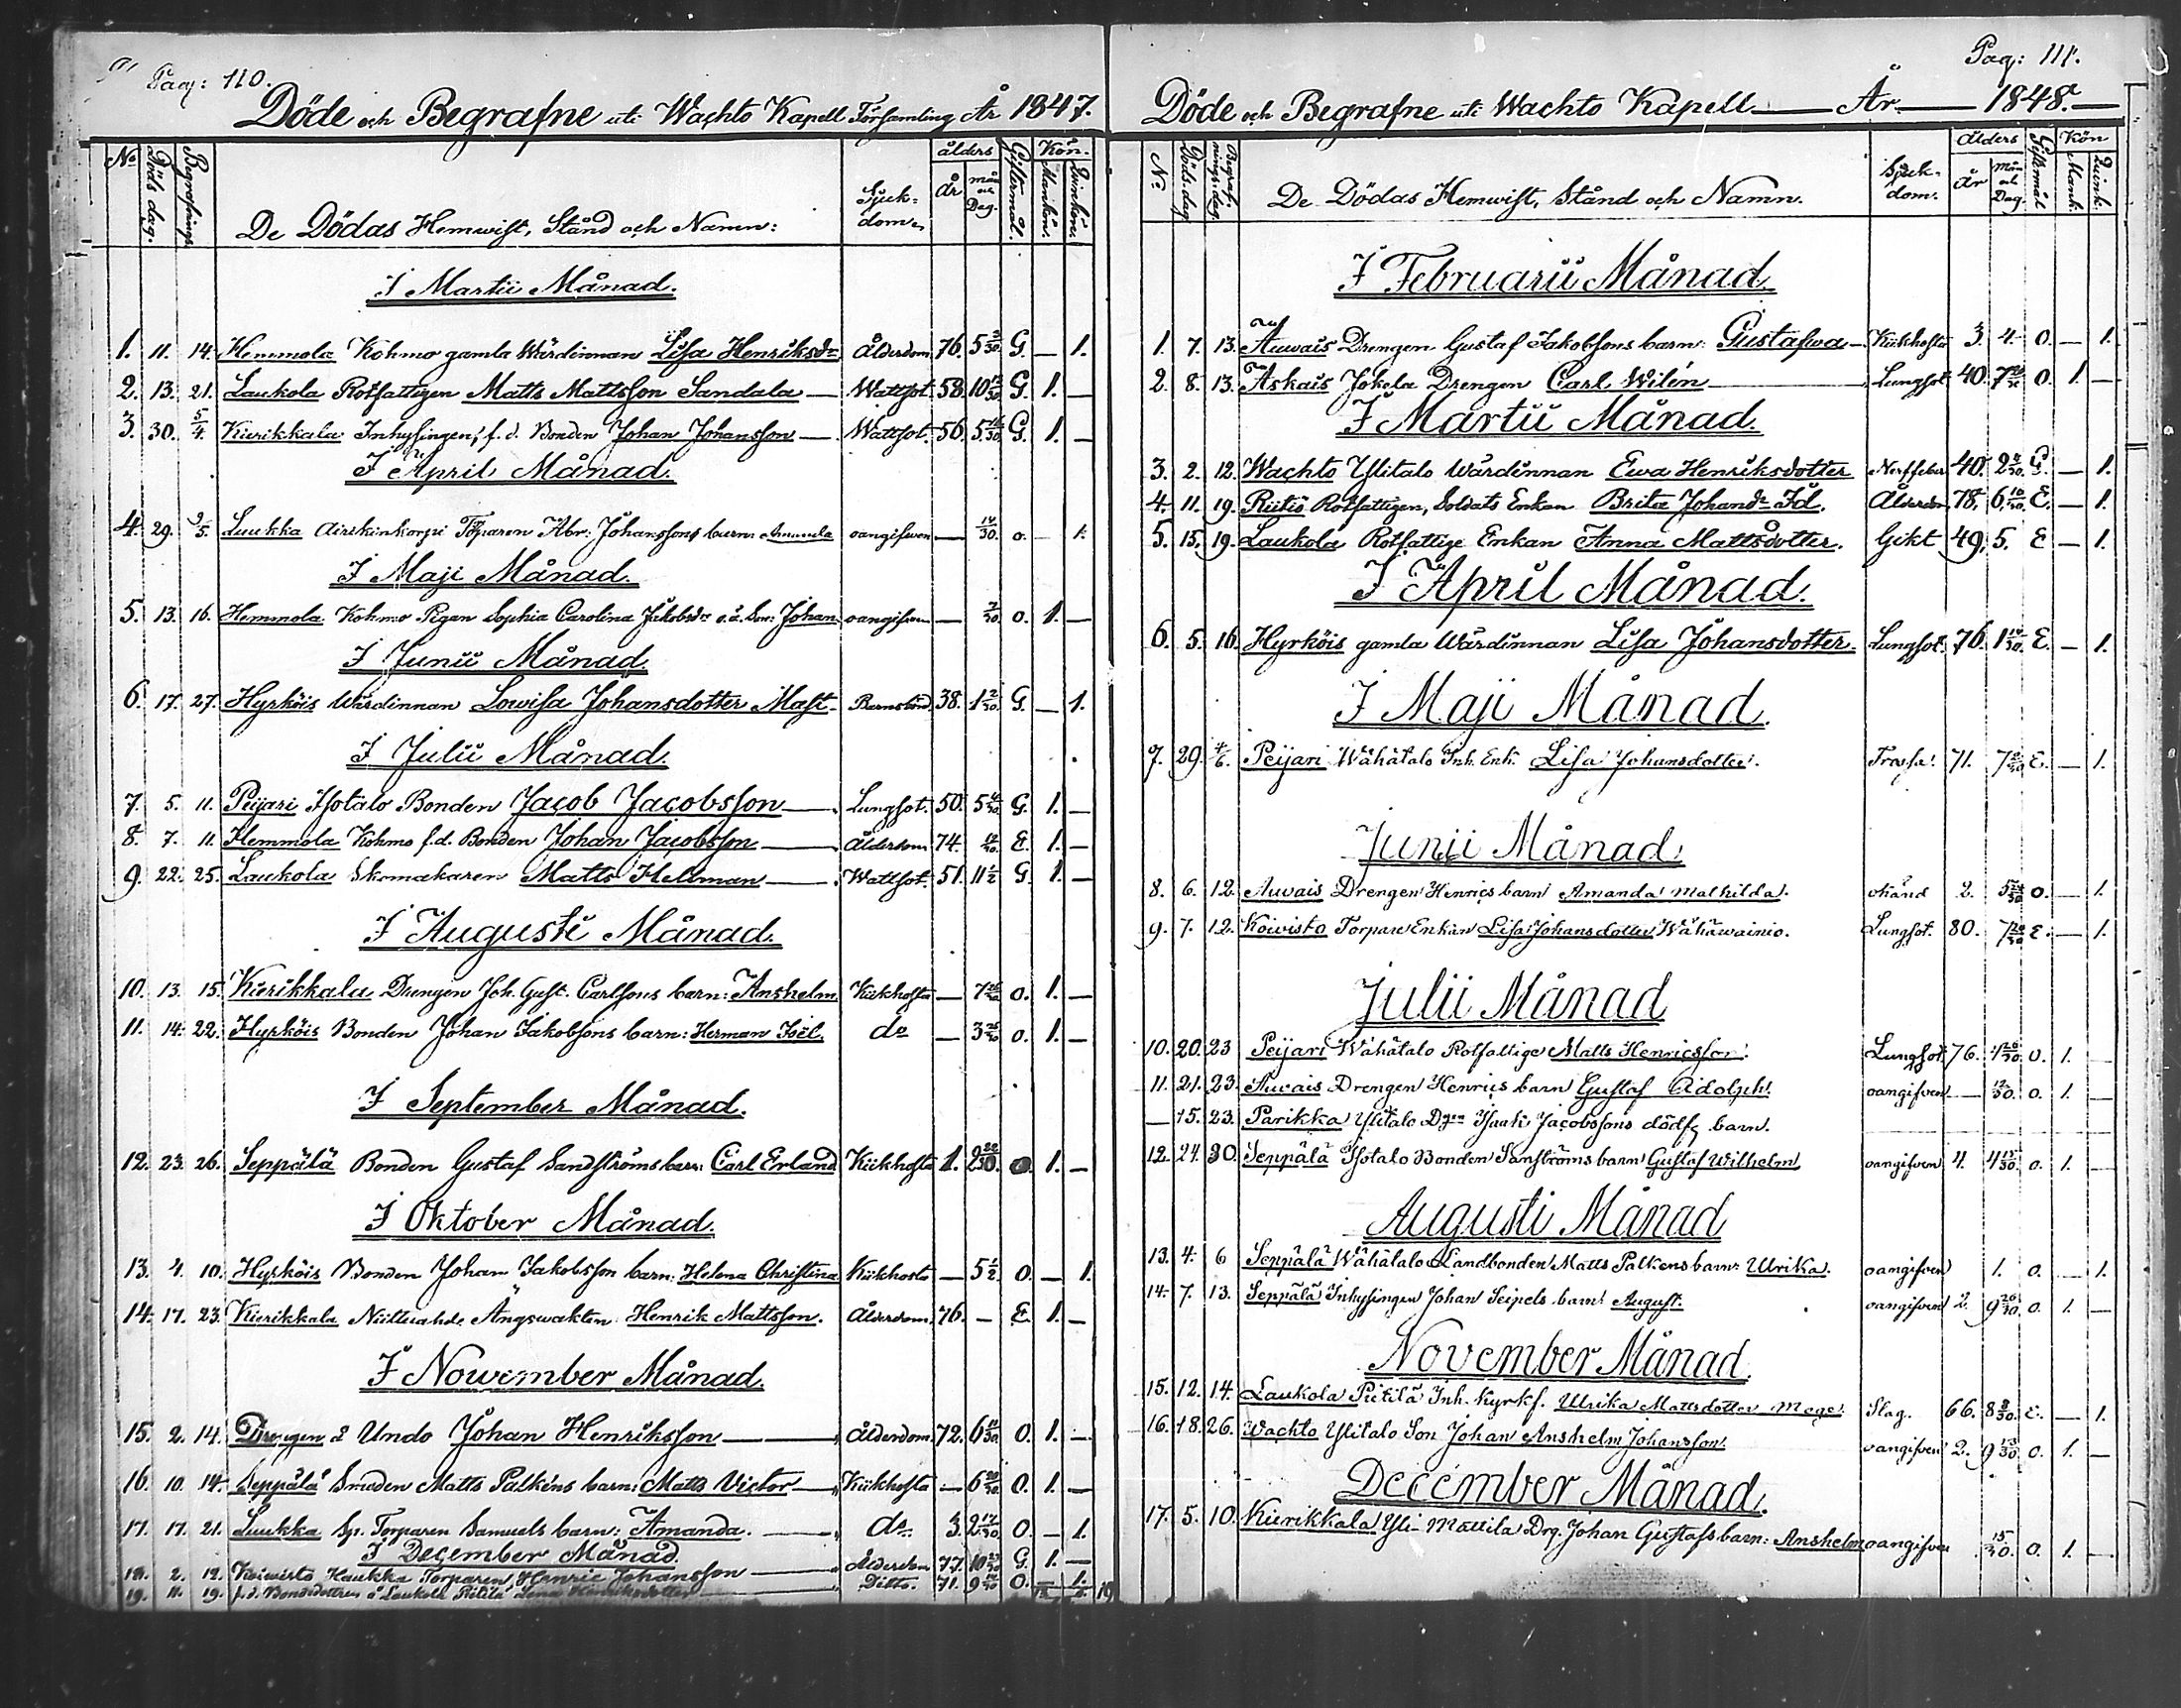 Pag: 110.
Döde och Begrafne uti Wachto Kapell Församling År 1847.
No Döds dag. Begrafnings De Dödas Hemwist, Stånd och Namn: Sjuk=dom. ålders År mån och Dag. Giftermål. Kön. Mankön. Qwinkön.
I Martii Månad.
1. 11. 14. Hemmola Kohmo gamla Wärdinnan Lisa Henriksdr Ålderdom 76. 5 3/30 G. — 1.
2. 13. 21. Laukola Rotfattigen Matts Mattsson Sandala — Wattsot. 58. 10 13/30 G. 1. —
3. 30. 5/4. Kierikkala Inhysingen, f.d. Bonden Johan Johansson — Wattsot. 56. 5 16/30 G. 1. —
I April Månad.
4. 29. 2/5. Luukka Airikinkorpi Torparen Abr: Johanssons barn: Amanda oangifwen — 14/30. o. — 1.
I Maji Månad.
5. 13. 16. Hemmola Kohmo Pigan Sophia Carolina Jakobsdr o.ä. Son: Johan oangifwen — 7/30 o. 1. —
I Junii Månad.
6. 17. 27. Hyrköis Wärdinnan Lowisa Johansdotter Mast — Barnsbörd 38. 1 2/30. G. — 1.
I Julii Månad.
7. 5. 11. Peijari Isotalo Bonden Jacob Jacobsson — Lungsot. 50. 5 4/30. G. 1. —
8. 7. 11. Hemmola Kohmo f.d. Bonden Johan Jacobsson — Ålderdom 74. 12/30 E. 1. —
9. 22. 25. Laukola Skomakaren Matts Hellman — Wattsot. 51. 11 1/2 G. 1. —
I Augusti Månad.
10. 13. 15. Kierikkala Drengen Joh. Gust. Carlssons barn: Anshelm Kikhosta — 7 26/30 o. 1. —
11. 14. 22. Hyrköis Bonden Johan Jakobssons barn: Herman Joël. do — 3 26/30 o. 1. —
I September Månad.
12. 23. 26. Seppälä Bonden Gustaf Sandströms barn: Carl Erland Kikhosta 1. 2 22/30. o. 1. —
I Oktober Månad.
13. 4. 10. Hyrköis Bonden Johan Jakobsson barn: Helena Christina Kikhosta — 5 1/2 O. — 1.
14. 17. 23. Kierikkala Ängswakten Henrik Mattsson. Ålderdom 76. — E. 1. —
I Nowember Månad.
15. 2. 14. Drengen å Undo Johan Henriksson — Ålderdom. 72. 6 11/30. O. 1. —
16. 10. 14. Seppälä Smeden Matts Palkéns barn: Matts Victor — Kikhosta — 6 20/30 O. 1. —
17. 17. 21. Luukka Sp. Torparen Samuels barn: Amanda. — do 3. 2 17/30 O. — 1.
I December Månad.
18. 2. 12. Koiwisto Haukka Torparen Henric Johansson — Ålderdom 77. 10 G. 1. —
19. 11. 19. f.d. Bondedottren å Laukola Pitilä Lena Henriksdotter — Ditto. 71. 9 O. — 1.
Pag: 111.
Döde och Begrafne uti Wachto Kapell — År — 1848. —
No Döds-dag Begraf-nings-dag De Dödas Hemwist, Stånd och Namn. Sjuk-dom. Ålders År Mån och Dag. Giftermål Kön Mank: Quink:
I Februarii Månad.
1. 7. 13. Auwais Drengen Gustaf Jakobssons barn: Gustafwa — Kikhosta 3. 4. O. — 1.
2. 8. 13. Askais Jokela Drengen Carl Wilén — Lungsot 40. 7 O. 1. —
I Martii Månad.
3. 2. 12. Wachto Ylitalo Wärdinnan Ewa Henriksdotter Nerffeber 40. 2 4/30. G. — 1.
4. 11. 19. Riitiö Rotfattigen, Soldats Enkan Brita Johansdr Id. Ålderdom 78. 6 10/30 E. — 1.
5. 15. 19. Laukola Rotfattige Enkan Anna Mattsdotter. Gikt 49. 5. E — 1.
I April Månad.
6. 5. 16. Hyrköis gamla Wärdinnan Lisa Johansdotter. Lungsot. 76. 1 14/30. E. — 1.
I Maji Månad.
7. 29. 4/6. Peijari Wähätalo Inh. Enk. Lisa Johansdotter. Frossa. 71. 7 E. — 1.
Junii Månad.
8. 6. 12. Auvais Drengen Henrics barn Amanda Mathilda. okänd 2. 5 O. — 1.
9. 7. 12. Koivisto Torpare Enkan Lisa Johansdotter Wähäwainio. Lungsot. 80. 7 20/30 E. — 1.
Julii Månad
10. 20. 23 Peijari Wähätalo Rotfattige Matts Henricsson. Lungsot. 76. 4 26/30. O. 1. —
11. 21. 23. Auvais Drengen Henrics barn Gustaf Adolph. oangifven — 12/30. O. 1. —
— 15. 23. Parikka Ylitalo Dgen Isaak Jacobssons dödf. barn.
12. 24. 30. Seppälä Isotalo Bonden Sanströms barn Gustaf Wilhelm oangifven 4. 4 15/30. O. 1. —
Augusti Månad
13. 4. 6 Seppälä Wähätalo Landbonden Matts Palkens barn: Ulrika. oangifven 1. O. — 1.
14. 7. 13. Seppälä Inhysingen Johan Seipels barn August. oangifven 2. 9 26/30 O. 1. —
November Månad.
15. 12. 14. Laukola Pietilä Inh. Kyrkf. Ulrika Mattsdotter Mege. Slag. 66. 8 8/30. E. — 1.
16. 18. 26. Wachto Ylitalo Son Johan Anshelm Johansson. oangifven 2. 9 13/30 O. 1. —
December Månad.
17. 5. 10. Kierikkala Yli-Mattila Drg. Johan Gustafs barn: Anshelm oangifven 15/30. O. 1. —